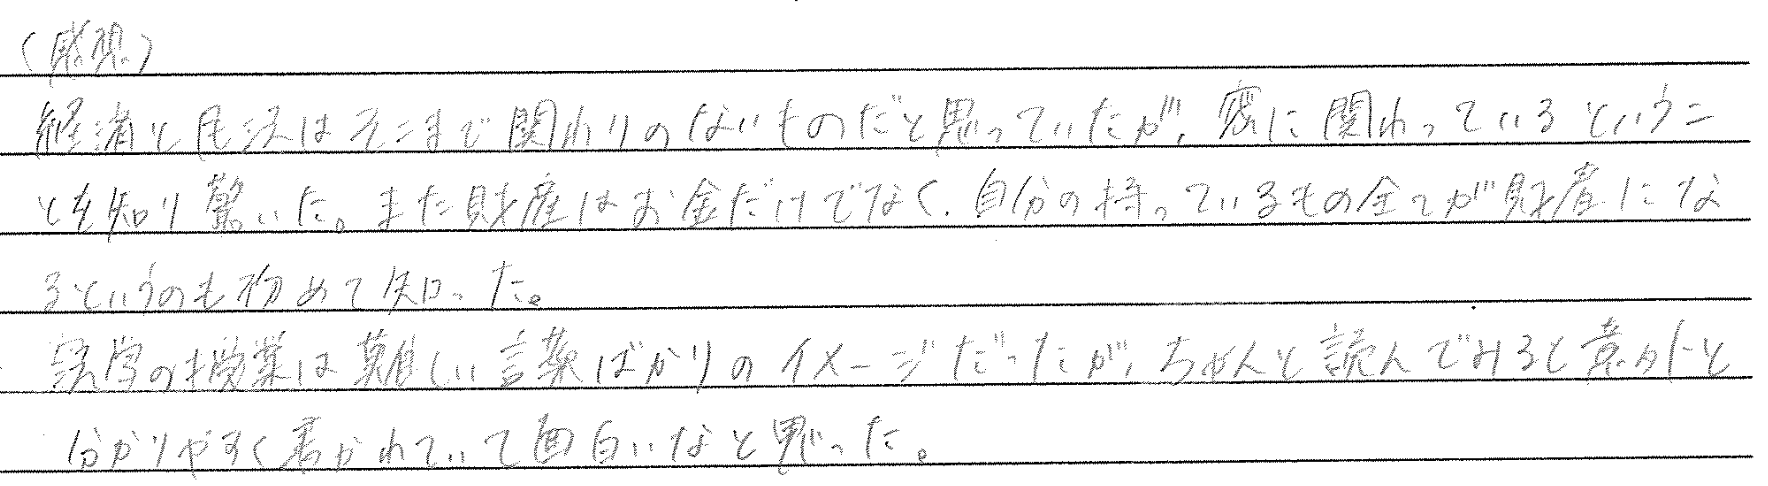 (感想)
経済と民法はそこまで関わりのないものだと思っていたが、密に関わっているというこ
とを知り驚いた。また財産はお金だけでなく、自分の持っているもの全てが財産にな
るというのも初めて知った。
法学の授業は難しい言葉ばかりのイメージだったが、ちゃんと読んでみると意外と
分かりやすく書かれていて面白いなと思った。